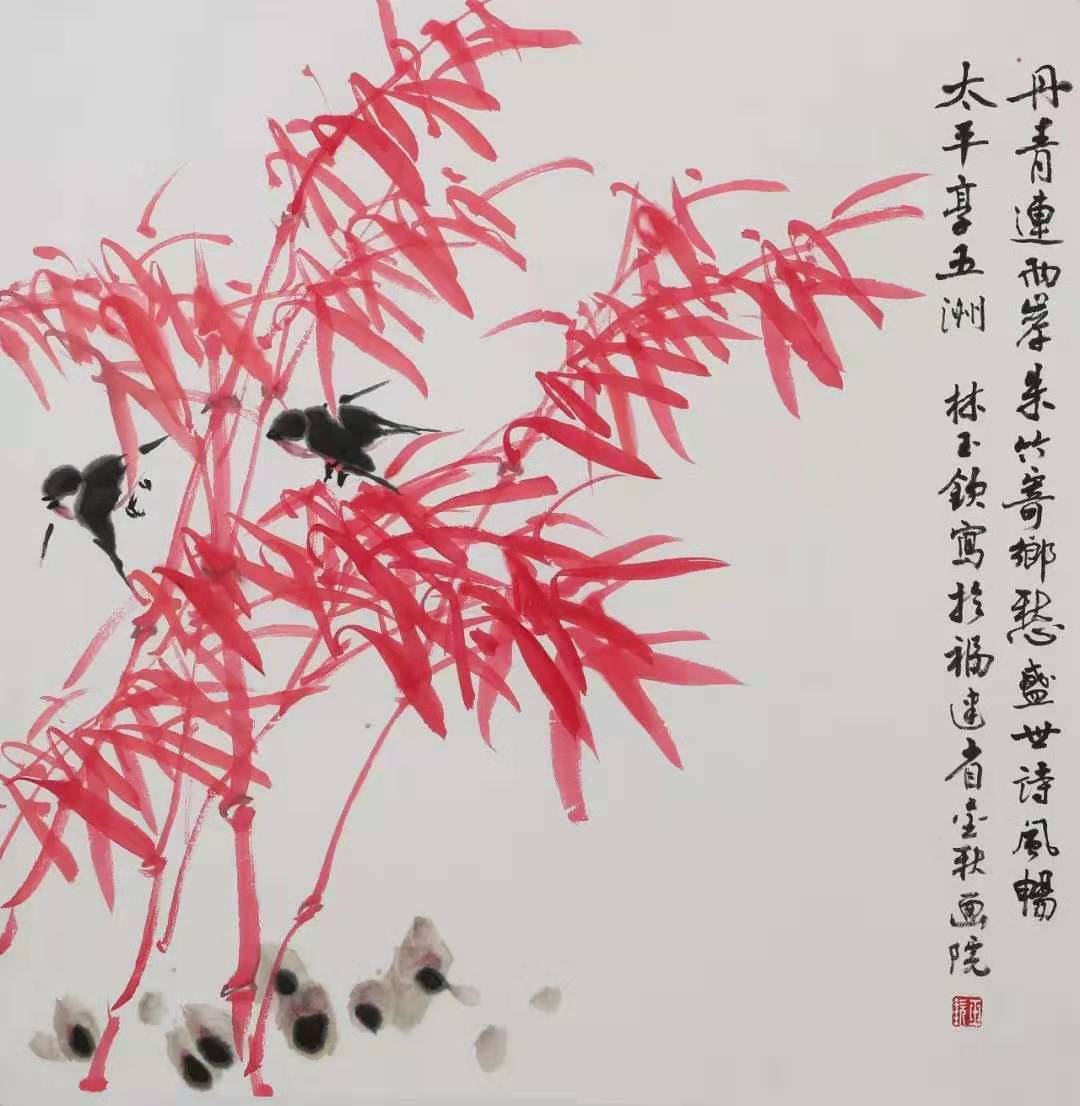 丹青連兩岸朱竹寄鄉愁盛世詩風暢
太平享五洲 林玉欽寫於福建省金秋画院